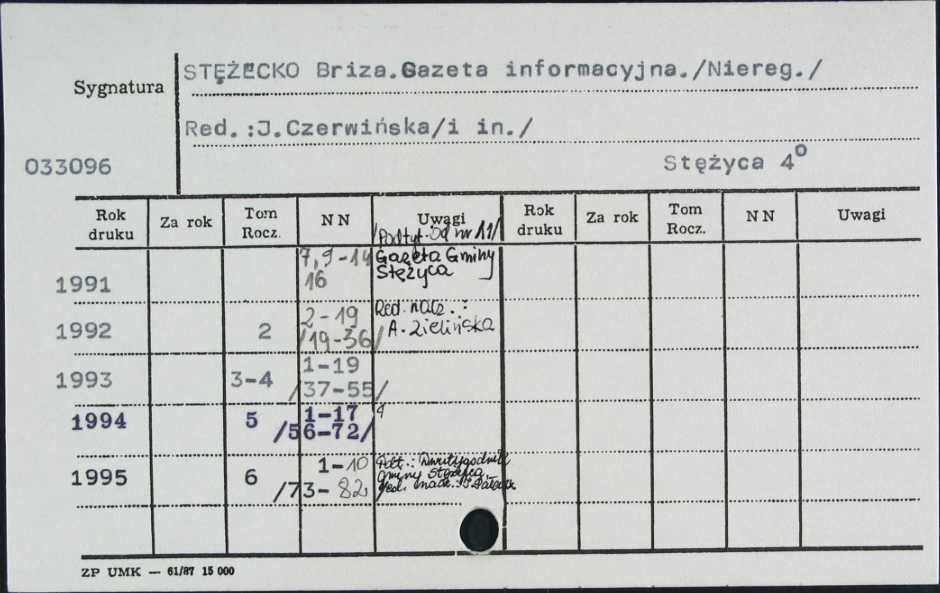 STĘŻECKO Briza.Gazeta informacyjna./Niereg./
Sygnatura
Red.:J.Czerwińska/i in./
033096
Stężyca 4°
Rok druku Za rok Tom Rocz. NN Uwagi Rok druku Za rok Tom Rocz. NN Uwagi
/Podtyt. od nr 11/
1991 7,9-14 Gazeta Gminy
16 Stężyca
1992 2 2-19 Red. nacz.:
/19-36/ A. Zielińska
1993 3-4 1-19
/37-55/
1994 5 1-17
/56-72/
1995 6 1-10 Podt.: Dwutygodnik
/73-82/ Gminy Stężyca.
Red. nacz.:
ZP UMK — 61/87 15 000